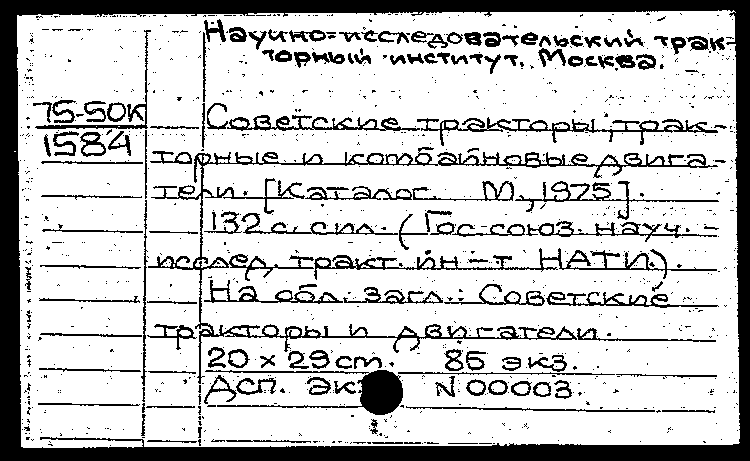 Научно-исследовательский трак-
торный институт. Москва.
75-50К
1584
Советские тракторы, трак-
торные и комбайновые двига-
тели. [Каталог. М., 1975].
132 с. с ил. (Гос. союз. науч.-
исслед. тракт. ин-т НАТИ).
На обл. загл.: Советские
тракторы и двигатели.
20 x 29 cm. 85 экз.
N 00003.